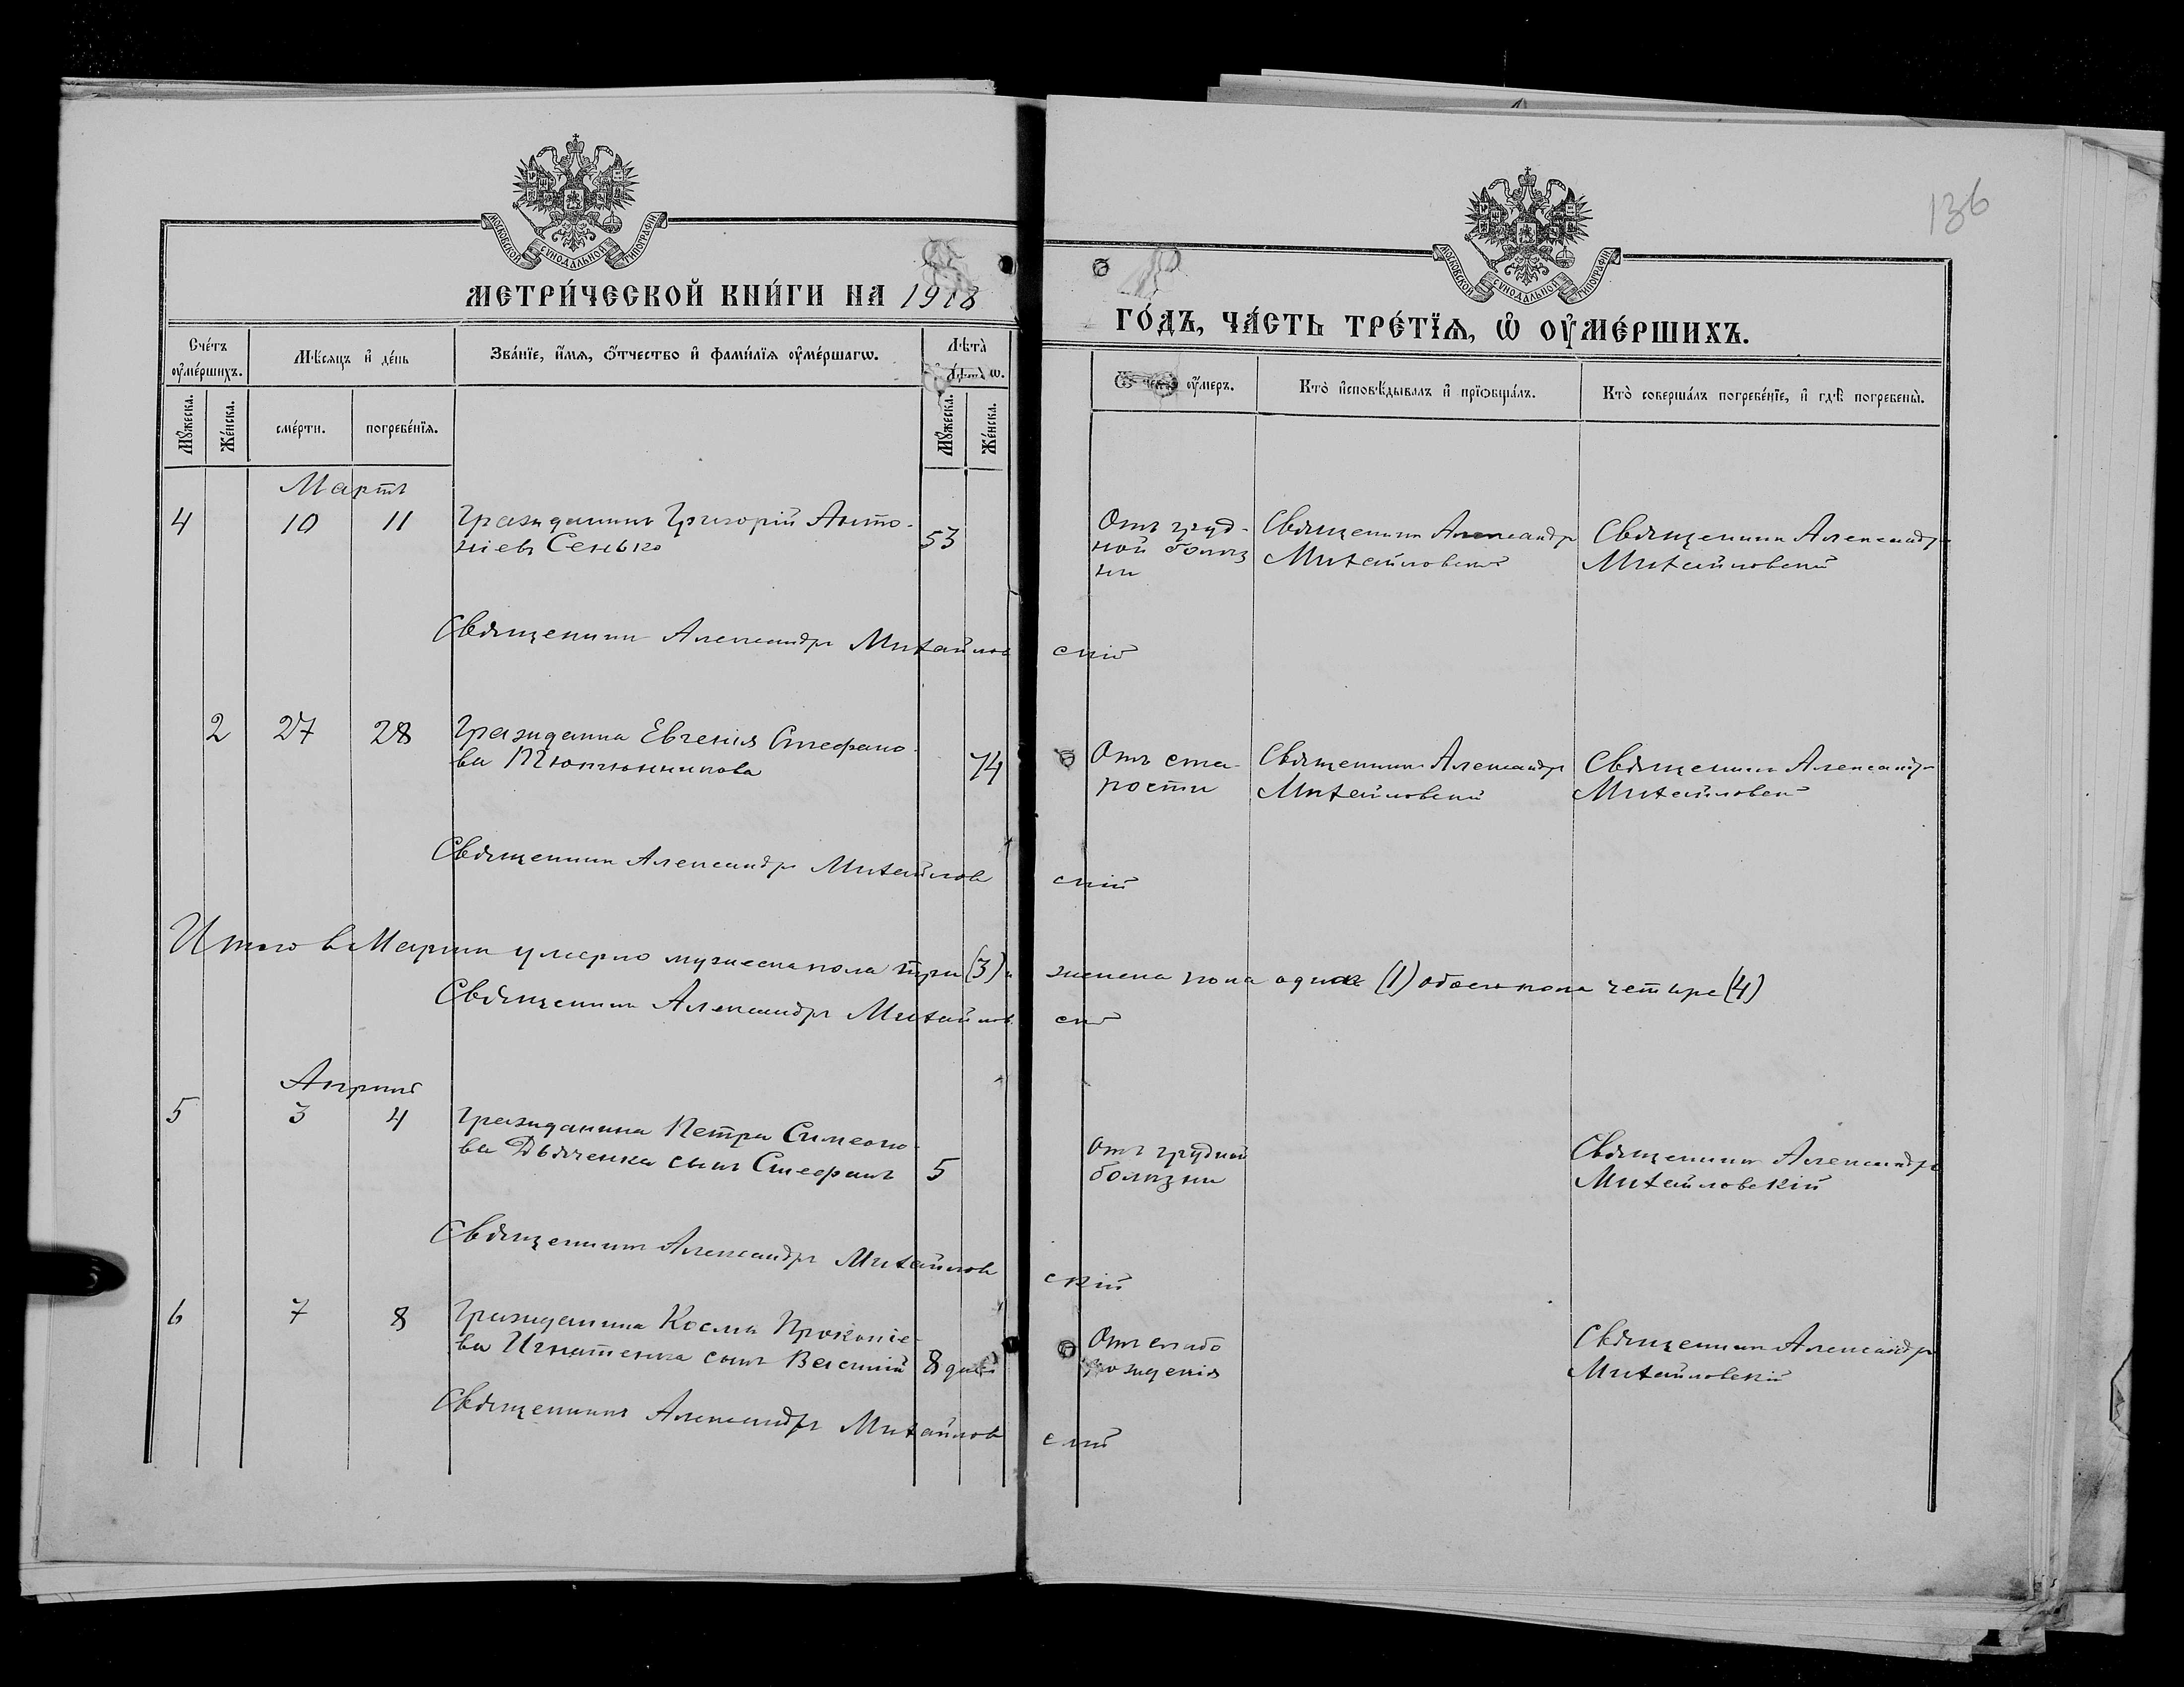 136
МОСКОВСКОЙ СУНОДАЛЬНОЙ ТИПОГРАФІИ
МОСКОВСКОЙ СУНОДАЛЬНОЙ ТИПОГРАФІИ
МЕТРИ́ЧЕСКОЙ КНИ́ГИ НА 1918
ГО́ДЪ, ЧА́СТЬ ТРЕ́ТЇѦ, Ѽ ОУ҆МЕ́РШИХЪ.
Сче́тъ оу҆ме́ршихъ.
Мѣ́сѧцъ и҆ де́нь
Зва́нїе, и҆́мѧ, ѻ҆́тчество и҆ фами́лїѧ оу҆ме́ршагѡ.
Лѣта̀
Ѿ чегѡ̀ оу҆́меръ.
Кто̀ и҆сповѣ́дывалъ и҆ прїѻбща́лъ.
Кто̀ соверша́лъ погребе́нїе, и҆ гдѣ̀ погребены̀.
Мꙋ́жеска.
Же́нска.
сме́рти.
погребе́нїѧ.
Мꙋ́жеска.
Же́нска.
Мартъ
4 10 11 Гражданинъ Григорій Анто-
ніевъ Сенько 53
Отъ груд-
ной болѣз
ни
Священникъ Александръ
Михайловскій
Священникъ Александръ
Михайловскій
Священникъ Александръ Михайлов скій
2 27 28 Гражданка Евгенія Стефано-
ва Тютюнникова 74
Отъ ста-
рости
Священникъ Александръ
Михайловскій
Священникъ Александръ
Михайловскій
Священникъ Александръ Михайлов скій
Итого в Мартѣ умерло мужеска пола три (3) и женска пола одна (1) обоего пола четыре (4)
Священникъ Александръ Михайлов скій
Апрѣль
5 3 4 Гражданина Петра Симеоно-
ва Дьяченка сынъ Стефанъ 5
Отъ грудной
болѣзни
Священникъ Александръ
Михайловскій
Священникъ Александръ Михайлов скій
6 7 8 Гражданина Космы Прокопіе-
ва Игнатенка сынъ Василій 8 дней
Отъ слабо
рожденія
Священникъ Александръ
Михайловскій
Священникъ Александръ Михайлов скій